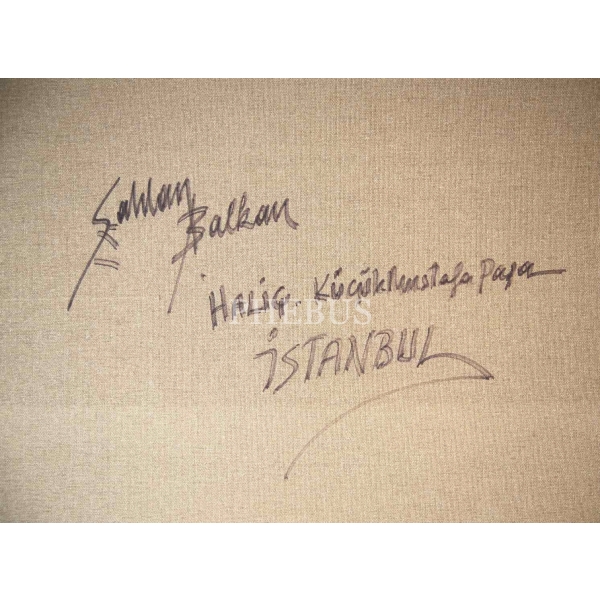 Şahlan Balkan
HALİÇ. KüçükMustafa Paşa
PHEBUS
İSTANBUL